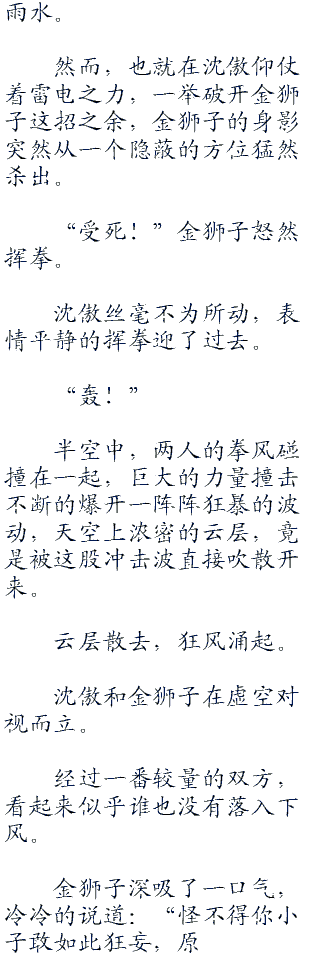 雨水。
然而，也就在沈傲仰仗
着雷电之力，一举破开金狮
子这招之余，金狮子的身影
突然从一个隐蔽的方位猛然
杀出。
“受死！”金狮子怒然
挥拳。
沈傲丝毫不为所动，表
情平静的挥拳迎了过去。
“轰！”
半空中，两人的拳风碰
撞在一起，巨大的力量撞击
不断的爆开一阵阵狂暴的波
动，天空上浓密的云层，竟
是被这股冲击波直接吹散开
来。
云层散去，狂风涌起。
沈傲和金狮子在虚空对
视而立。
经过一番较量的双方，
看起来似乎谁也没有落入下
风。
金狮子深吸了一口气，
冷冷的说道：“怪不得你小
子敢如此狂妄，原